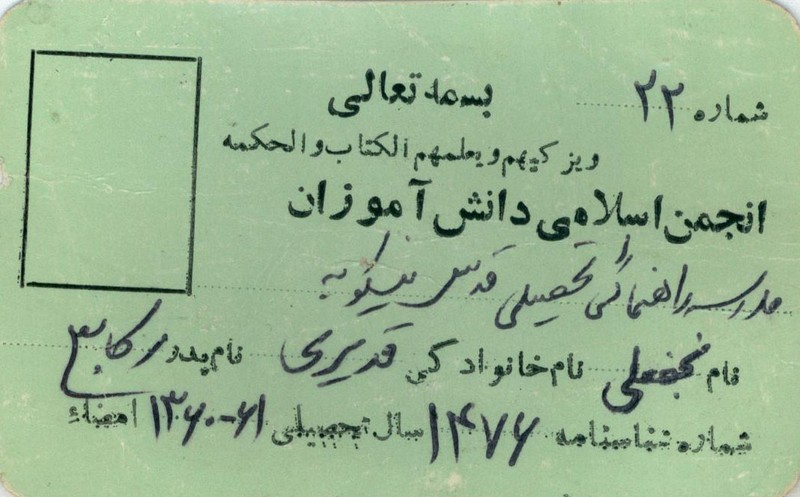 شماره ۲۲
بسمه تعالی
ویزکیهم ویعلمهم الکتاب والحکمه
انجمن اسلامی دانش آموزان
مدرسه راهنمائی تحصیلی قدس
نام نجفعلی نام خانوادگی قدیری نام پدر
شماره شناسنامه ۱۴۷۶ سال تحصیلی ۶۱-۱۳۶۰ امضاء